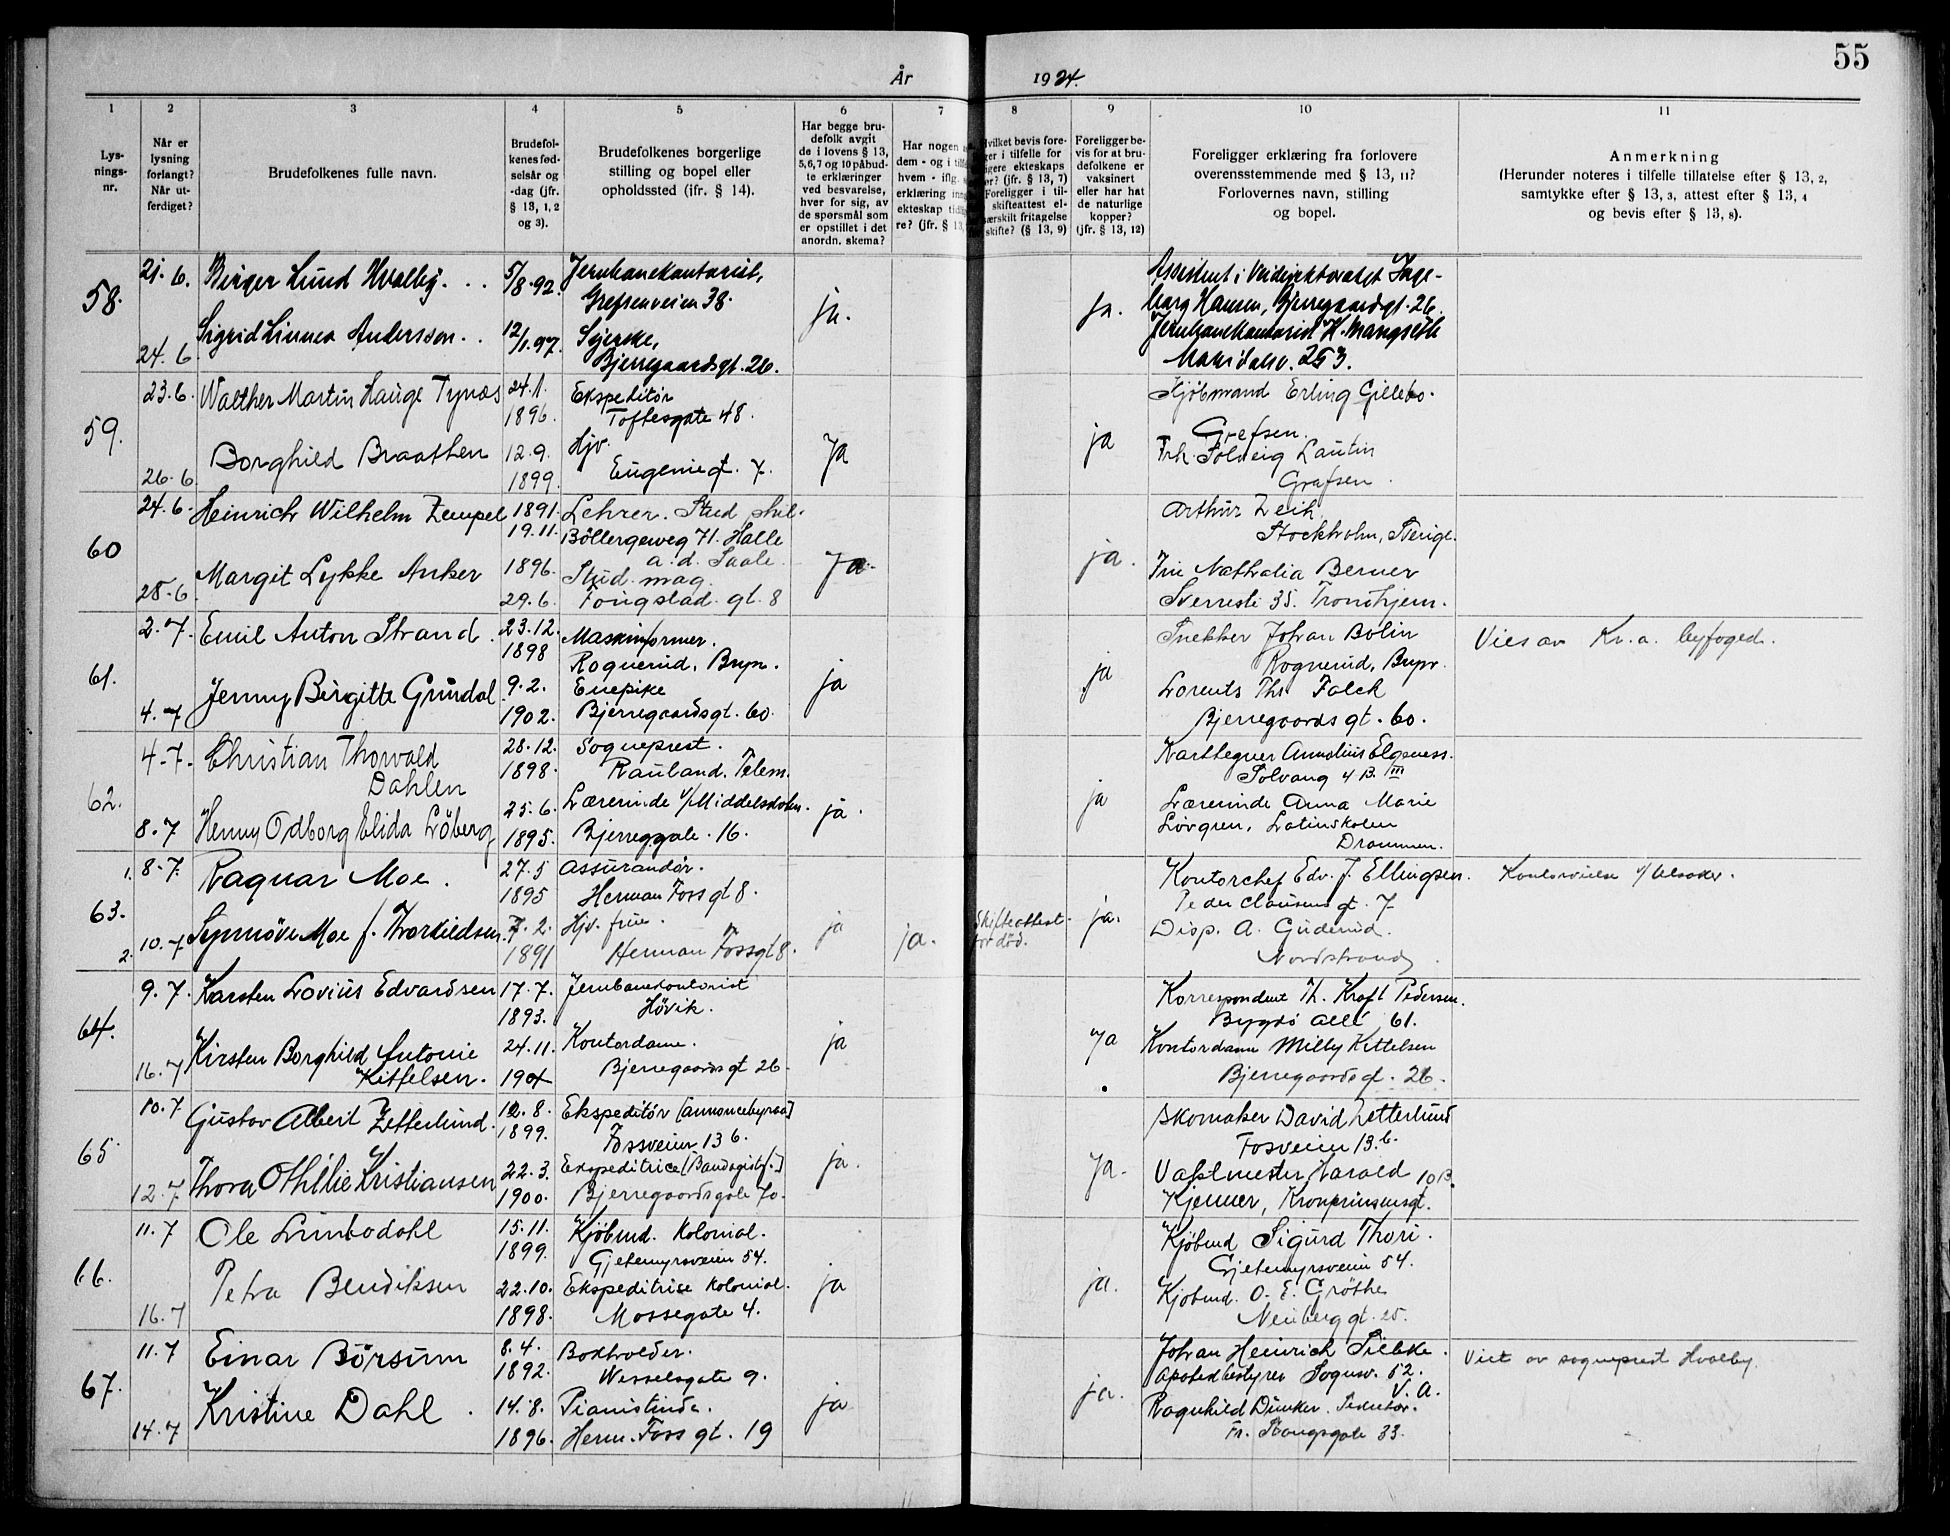 55
År 1924.
1 2 3 4 5 6 7 8 9 10 11
Lys-
nings-
nr.
Når er
lysning
forlangt?
Når ut-
ferdiget?
Brudefolkenes fulle navn.
Brudefol-
kenes fød-
selsår og
-dag (jfr.
§ 13, 1, 2
og 3).
Brudefolkenes borgerlige
stilling og bopel eller
opholdssted (jfr. § 14).
Har begge bru-
defolk avgit
de i lovens § 13,
5,6,7 og 10 påbud-
te erklæringer
ved besvarelse,
hver for sig, av
de spørsmål som
er opstillet i det
anordn. skema?
Har nogen
dem - og i
hvem - iflg.
erklæring
ekteskap
re? (jfr. § 13,
Hvilket bevis fore-
ger i tilfelle for
igere ekteskaps
(jfr. § 13, 7)
Foreligger i til-
skifteattest el-
særskilt fritagelse
skifte? (§ 13, 9)
Foreligger be-
vis for at bru-
defolkene er
vaksinert
eller har hat
de naturlige
kopper?
(jfr. § 13, 12)
Foreligger erklæring fra forlovere
overensstemmende med § 13, 11?
Forlovernes navn, stilling
og bopel.
Anmerkning
(Herunder noteres i tilfelle tillatelse efter § 13, 2,
samtykke efter § 13, 3, attest efter § 13, 4
og bevis efter § 13, 8).
58.
21. 6. Birger Lund Hvalby. 5/8.92. Jernbanekontorist,
Grefsenveien 38.
24. 6 Sigrid Linnea Andersson. 12/1.97. Syerske,
Bjerregaardsgt. 26.
ja. ja.
Assistent i Veidirektoratet Inge-
borg Hansen, Bjerregaardsgt. 26.
Jernbanekontorist H. Mangseth
Maridalsv. 253.
59.
23.6. Walther Martin Hauge Tynæs 24.1.
1896. Ekspeditør
Toftesgate 48.
26.6 Borghild Braathen 12.9.
1899. Hjv.
Eugeniegt. 7.
Ja ja
Kjöbmand Erling Gillebo.
Grefsen.
Frk. Solveig Lautin
Grefsen.
60
24.6. Heinrich Wilhelm Zempel 1891.
19.11. Lehrer. Stud. phil.
Böllergeweg 71. Halle
a.d. Saale.
28.6. Margit Lykke Anker 1896.
29.6. Stud. mag.
Fougstad. gt. 8
Ja. ja.
Arthur Zeih
Stockholm, Sverige.
Fru Nathalia Berner
Sverresli 35. Trondhjem.
61.
2.7. Emil Anton Strand. 23.12.
1898 Maskinformer.
Rognerud, Bryn.
4.7 Jenny Birgitte Grindal 9.2.
1902. Enepike
Bjerregaardsgt. 60.
ja ja
Snekker Johan Bolin
Rognerud, Bryn.
Lorents Ths Falck
Bjerregaards gt. 60.
Vies av Kr.a. byfoged.
62.
4.7. Christian Thorvald
Dahlen 28.12.
1898. Sogneprest.
Rauland, Telem.
8.7 Henny Odborg Elida Löberg 25.6.
1895. Lærerinde v/Middelskolen.
Bjerreggate. 16.
ja. ja
Karttegner Annolius Elgeness.
Solvang 4 B. III
Lærerinde Anna Marie
Lövgren, Latinskolen
Drammen.
63.
1. 8.7. Ragnar Moe. 27.5
1895 Assurandör.
Herman Foss gt 8.
2. 10.7 Synnöve Moe f. Thorkildsen. 7.2.
1891 Hjv. frue.
Herman Foss gt 8.
ja ja. Skifteattest
for död. ja.
Kontorchef Edv. J. Ellingsen.
Peder Clausens gt. 7
Disp. A. Guderud.
Nordstrand.
64.
9.7. Karsten Lovius Edvardsen 17.7.
1893. Jernbanekontorist
Hövik.
16.7 Kirsten Borghild Antonie
Kittelsen. 24.11.
1904 Kontordame.
Bjerregaards gt 26.
ja Ja
Korrespondent Th. Kraft Pedersen.
Bygdö allé 61.
Kontordame Milly Kittelsen
Bjerregaardsgt. 26.
65.
10.7. Gustav Albert Zetterlund. 12.8.
1899. Ekspeditör [annoncebyraa]
Fossveien 13 b.
12.7 Thora Othillie Kristiansen 22.3.
1900. Ekspeditrice [Bandagistf.]
Bjerregaardsgate 70.
ja. Ja.
Skomaker David Zetterlund
Fosveien 13.b.
Vaktmester Harald 10 B.
Kjenner, Kronprinsensgt.
66.
11.7 Ole Limbodahl 15.11.
1899. Kjöbmd. kolonial.
Gjetemyrsveien 54.
16.7 Petra Bendiksen 22.10.
1898. Ekspeditrice kolonial.
Mossegate 4.
ja ja.
Kjöbmd Sigurd Thori.
Gjetemyrsveien 54.
Kjobmd. O. E. Gröthe
Neuberg gt. 25.
67.
11.7 Einar Börsum 8.4.
1892. Bokholder.
Wesselsgate 9.
14.7 Kristine Dahl. 14.8.
1896. Pianistinde.
Herm. Foss gt. 19
ja ja.
Johan Heinrich Siebke.
Apotekbestyrer Sognsv. 52.
V. A.
Ragnhild Dunker.
Fr. Stangsgate 33.
Viet av sogneprest Hvalby.